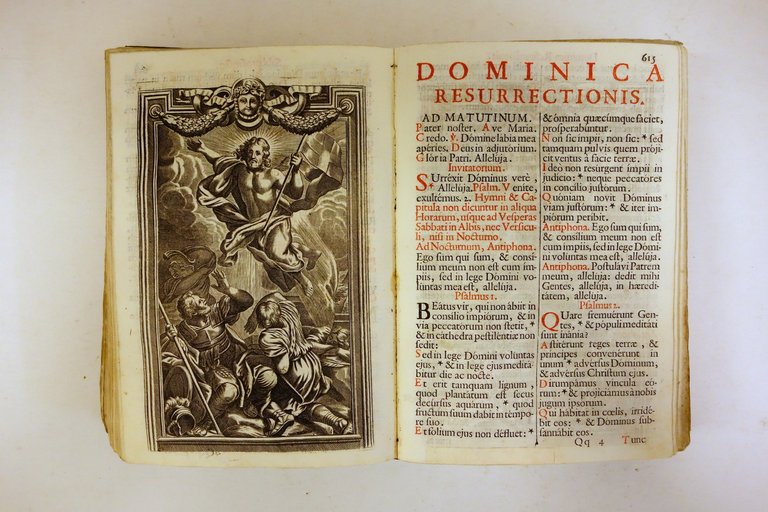 613
DOMINICA
RESURRECTIONIS.
AD MATUTINUM.
Pater noster. Ave Maria.
Credo. ℣. Dómine labia mea
apéries. Deus in adjutórium.
Glória Patri. Allelúja.
Invitatorium.
Surréxit Dóminus verè,
* Allelúja. Psalm. Venite,
exultémus. 2. Hymni & Ca-
pitula non dicuntur in aliqua
Horarum, usque ad Vesperas
Sabbati in Albis, nec Versicu-
li, nisi in Nocturno.
Ad Nocturnum, Antiphona.
Ego sum qui sum, & consí-
lium meum non est cum im-
piis, sed in lege Dómini vo-
lúntas mea est, allelúja.
Psalmus 1.
Beátus vir, qui non ábiit in
consílio impiórum, & in
via peccatórum non stetit, *
& in cáthedra pestiléntiæ non
sedit:
Sed in lege Dómini volúntas
ejus, * & in lege ejus meditá-
bitur die ac nocte.
Et erit tamquam lignum,
quod plantátum est secus
decúrsus aquárum, * quod
fructum suum dabit in témpo-
re suo.
Et fólium ejus non défluet: *
& ómnia quæcúmque fáciet,
prosperabúntur.
Non sic ímpii, non sic: * sed
tamquam pulvis quem próji-
cit ventus à fácie terræ.
Ideo non resúrgent ímpii in
judício: * neque peccatóres
in concílio justórum.
Quóniam novit Dóminus
viam justórum: * & iter im-
piórum períbit.
Antiphona. Ego sum qui sum,
& consílium meum non est
cum ímpiis, sed in lege Dómi-
ni volúntas mea est, allelúja.
Antiphona. Postulávi Patrem
meum, allelúja: dedit mihi
Gentes, allelúja, in hæredi-
tátem, allelúja.
Psalmus 2.
Quare fremuérunt Gen-
tes, * & pópuli meditáti
sunt inánia?
Astitérunt reges terræ, &
príncipes convenérunt in
unum * advérsus Dóminum,
& advérsus Christum ejus.
Dirumpámus víncula eó-
rum: * & projiciámus à nobis
jugum ipsórum.
Qui hábitat in cœlis, irridé-
bit eos: * & Dóminus sub-
sannábit eos.
Qq 4 Tunc